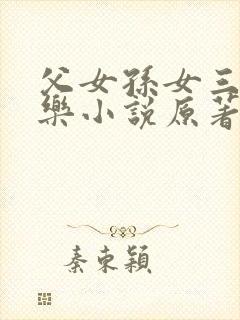 父女孫女三
樂小說原著
秦東穎